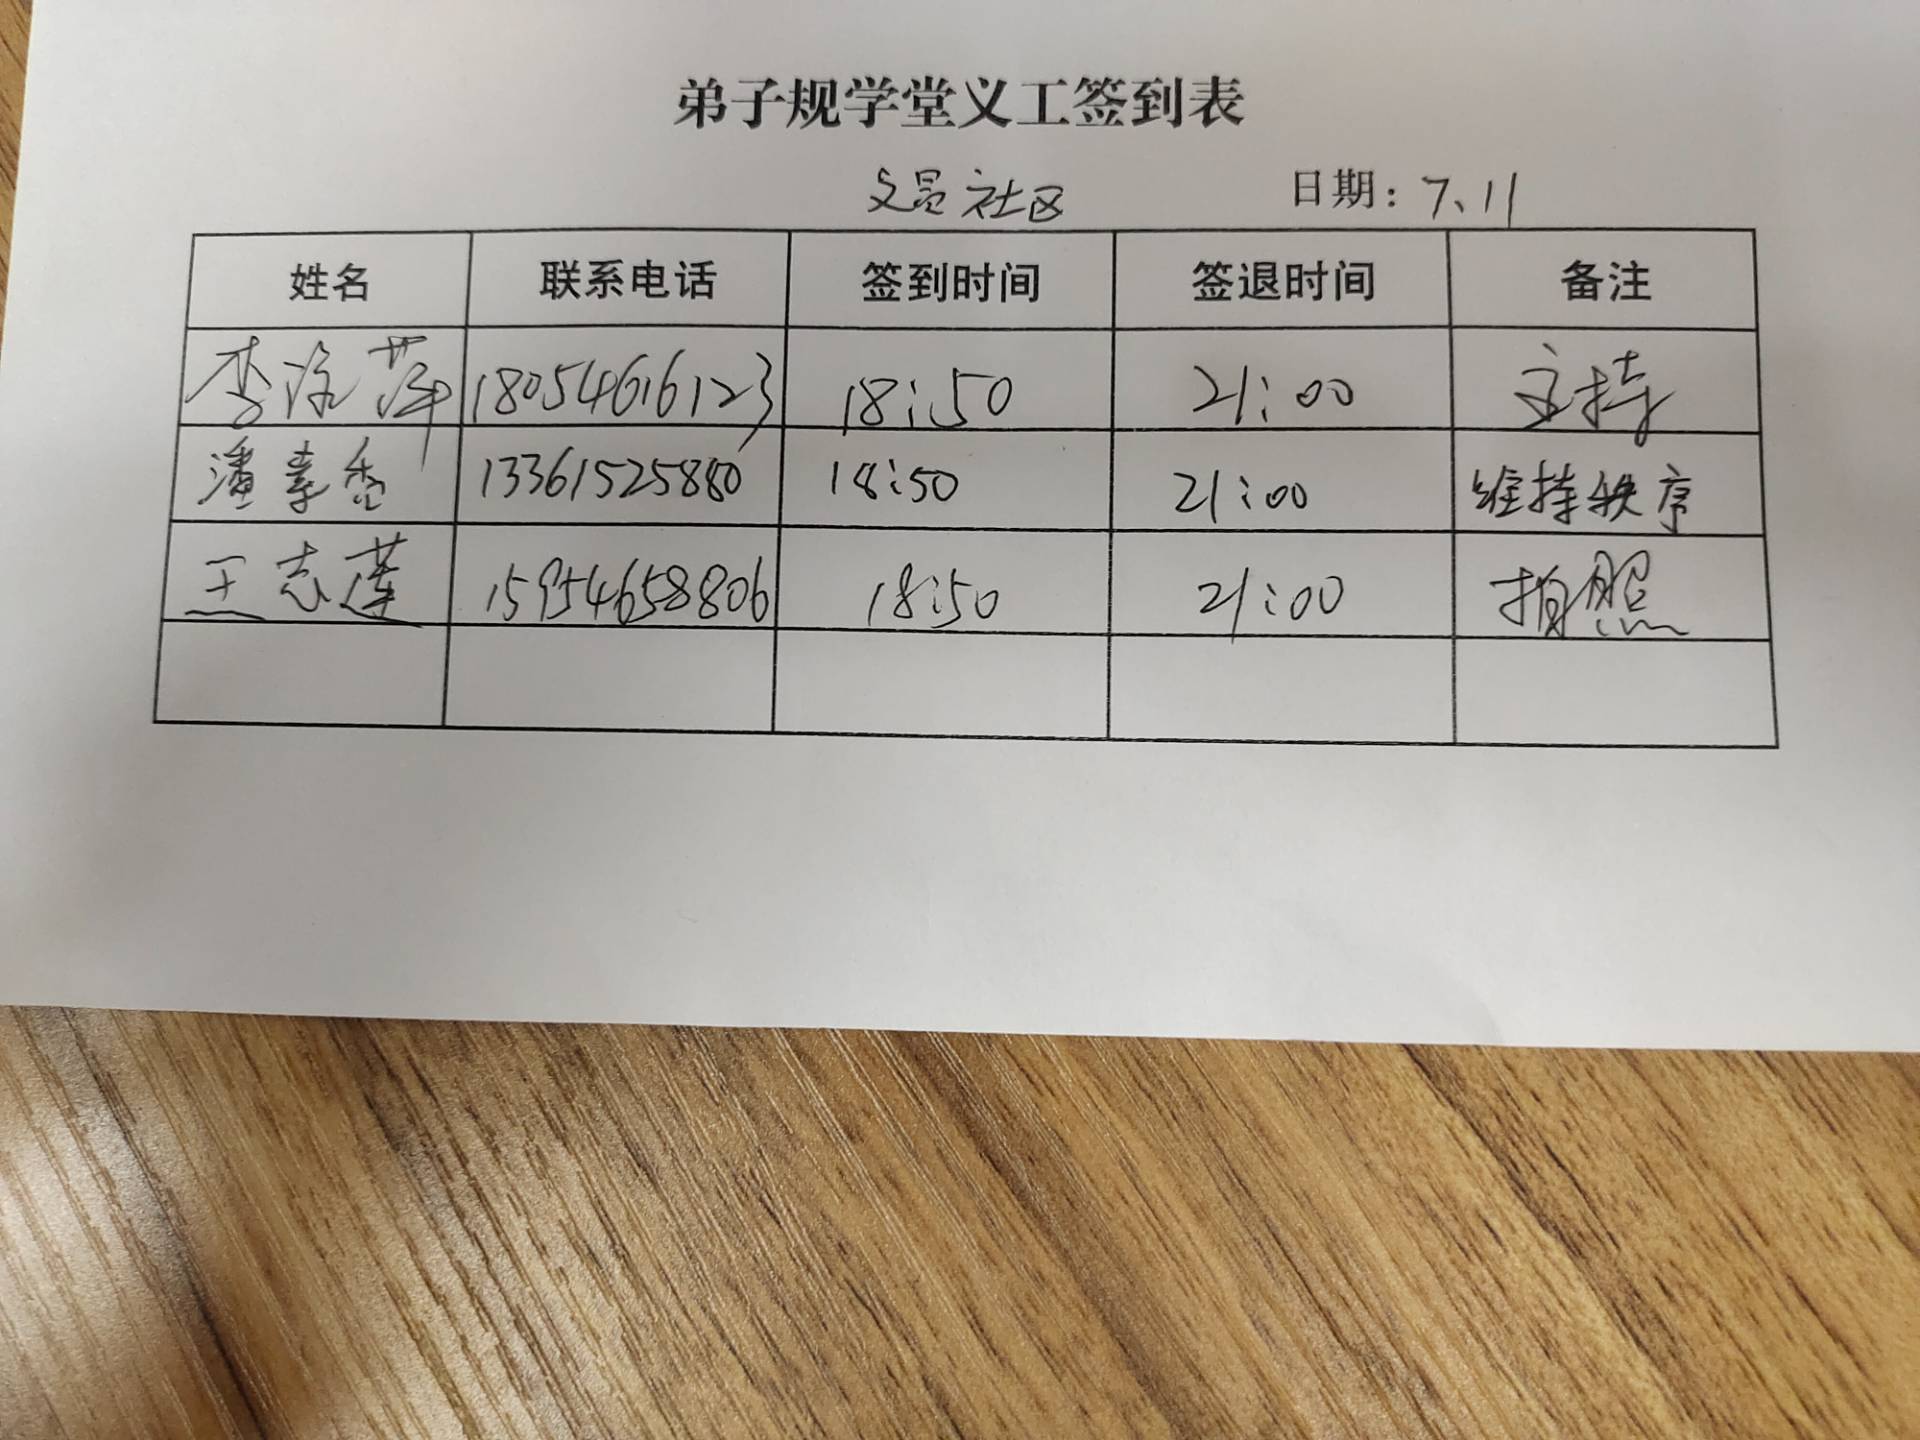 弟子规学堂义工签到表
文昌社区 日期：7、11
姓名 联系电话 签到时间 签退时间 备注
李 萍 18054616123 18:50 21:00 主持
潘素香 13361525880 18:50 21:00 维持秩序
王志莲 15954658806 18:50 21:00 拍照